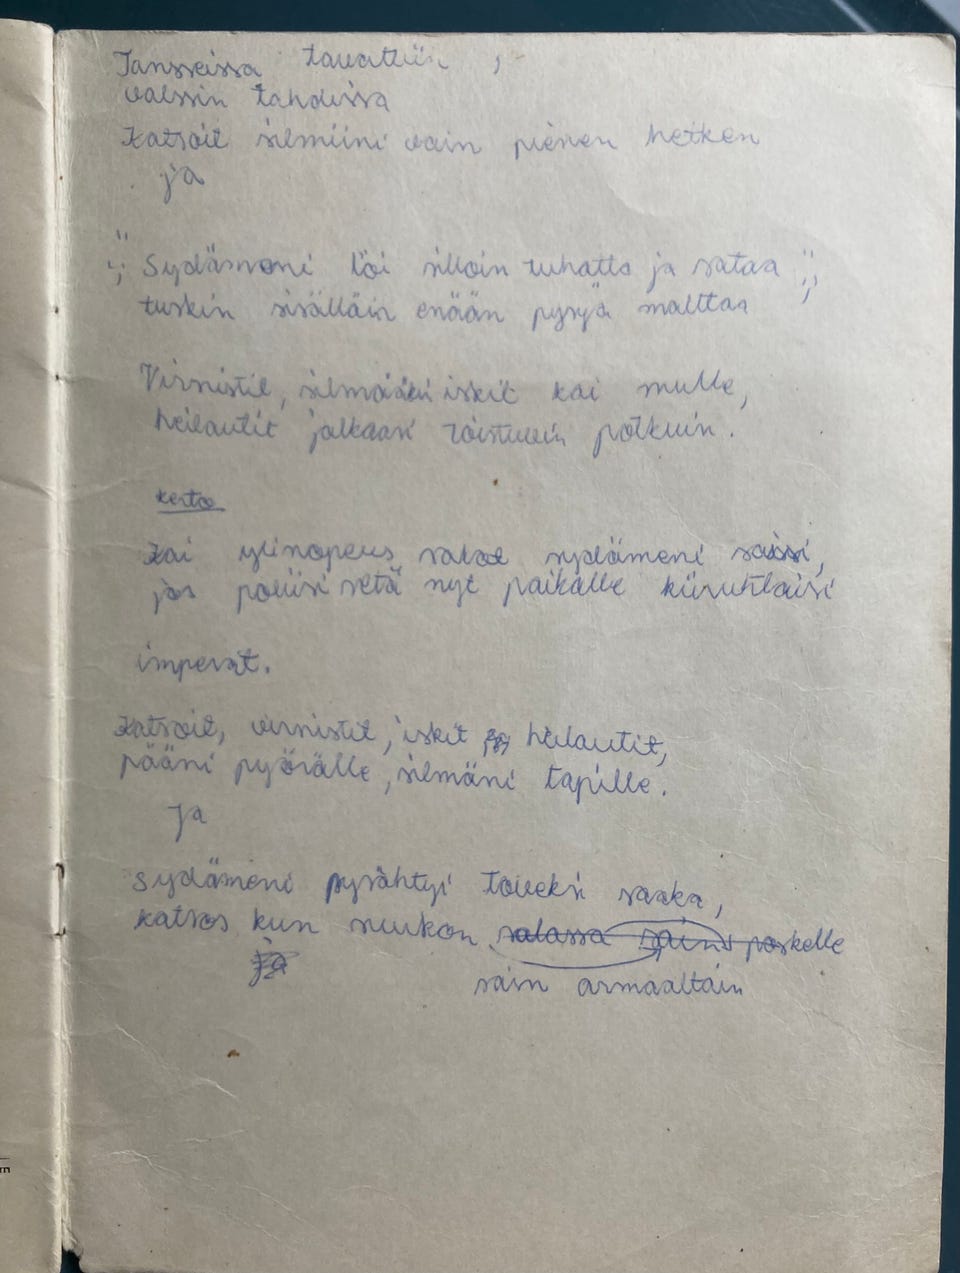 Tansseissa tavattiin,
valssin tahdissa
Katsoit silmiini vain pienen hetken
ja
";; Sydämeni löi silloin tuhatta ja sataa ";;
tuskin sisälläin enään pysyä malttaa
Virnistit, silmääsi iskit kai mulle,
heilautit jalkaasi potkuin.
kerto
Kai ylinopeus sakot sydämeni saisi,
jos poliisi setä nyt paikalle kiiruhtaisi
imperat.
Katsoit, virnistit, iskit ja heilautit,
pääni pyörälle, silmäni tapille.
ja
sydämeni pyrähtyi toveksi saaka,
katsos kun suukon salassa sains poskelle
ja
sain armaaltain
m